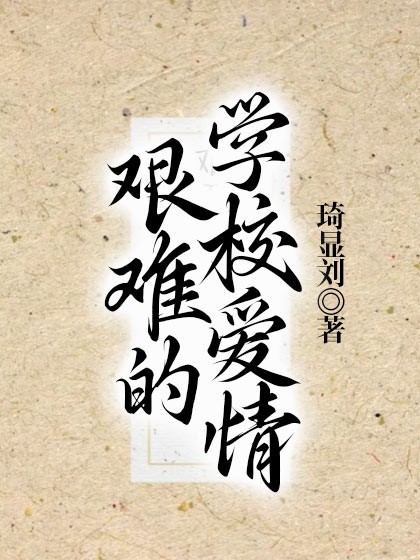 艰难的
学校爱情
琦显刘◎著